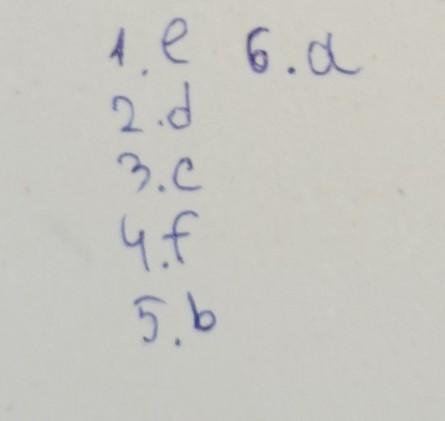 1. e 6. a
2. d
3. c
4. f
5. b